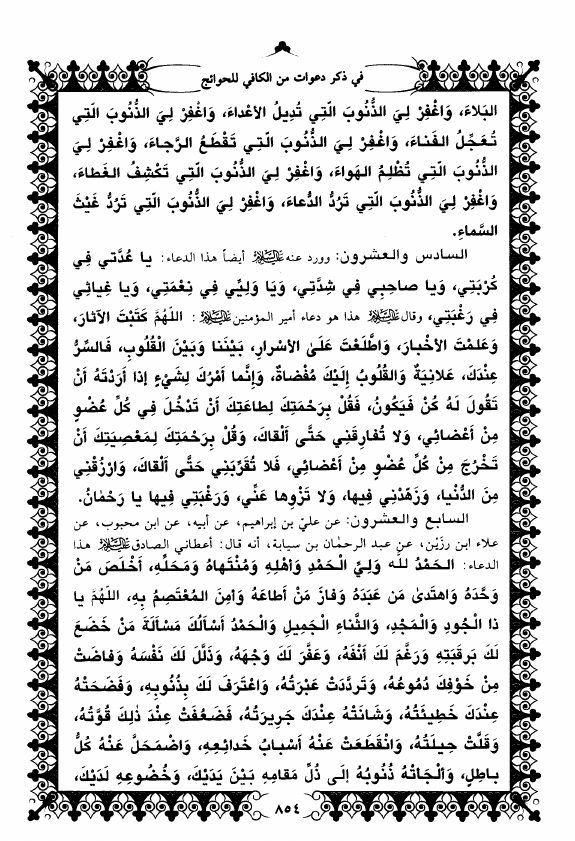 في ذكر دعوات من الكافي للحوائج
البَلاءَ، وَاغْفِرْ لِيَ الذُّنُوبَ الَّتِي تُدِيلُ الأعْداءَ، وَاغْفِرْ لِيَ الذُّنُوبَ الَّتِي
تُعَجِّلُ الفَناءَ، وَاغْفِرْ لِيَ الذُّنُوبَ الَّتِي تَقْطَعُ الرَّجاءَ، وَاغْفِرْ لِيَ
الذُّنُوبَ الَّتِي تُظْلِمُ الهَواءَ، وَاغْفِرْ لِيَ الذُّنُوبَ الَّتِي تَكْشِفُ الغَطاءَ،
وَاغْفِرْ لِيَ الذُّنُوبَ الَّتِي تَرُدُّ الدُّعاءَ، وَاغْفِرْ لِيَ الذُّنُوبَ الَّتِي تَرُدُّ غَيْثَ
السَّماءِ.
السادس والعشرون: وورد عنه عليه السلام أيضاً هذا الدعاء: يا عُدَّتي فِي
كُرْبَتِي، وَيا صاحِبِي فِي شِدَّتِي، وَيَا وَلِيِّي فِي نِعْمَتِي، وَيا غِياثِي
فِي رَغْبَتِي، وقال عليه السلام هذا هو دعاء أمير المؤمنين عليه السلام: اللهُمَّ كَتَبْتَ الآثارَ،
وَعَلِمْتَ الأخْبارَ، وَاطَّلَعْتَ عَلىٰ الأسْرارِ، بَيْنَنا وَبَيْنَ القُلُوبِ، فَالسِّرُّ
عِنْدَكَ، عَلانِيَةٌ وَالقُلُوبُ إلَيْكَ مُفْضاةٌ، وَإنَّما أمْرُكَ لِشَيْءٍ إذا أرَدْتَهُ أنْ
تَقُولَ لَهُ كُنْ فَيَكُونُ، فَقُلْ بِرَحْمَتِكَ لِطاعَتِكَ أنْ تَدْخُلَ فِي كُلِّ عُضْوٍ
مِنْ أعْضائِي، وَلا تُفارِقنِي حَتَّى ألْقاكَ، وَقُلْ بِرَحْمَتِكَ لِمَعْصِيَتِكَ أنْ
تَخْرُجَ مِنْ كُلِّ عُضْوٍ مِنْ أعْضائِي، فَلا تُقَرِّبُنِي حَتَّى ألْقاكَ، وَارْزُقْنِي
مِنَ الدُّنْيا، وَزَهِّدْنِي فِيها، وَلا تَزْوِها عَنِّي، وَرَغْبَتِي فِيها يا رَحْمٰانُ.
السابع والعشرون: عن عليّ بن إبراهيم، عن أبيه، عن ابن محبوب، عن
علاء ابن رزَيْن، عن عبد الرحمٰان بن سيابة، أنه قال: أعطاني الصادق عليه السلام هذا
الدعاء: الحَمْدُ للّه وَلِيِّ الْحَمْدِ وَأهْلِهِ وَمُنْتَهاهُ وَمَحَلِّهِ، أخْلَصَ مَنْ
وَحَّدَهُ وَاهْتَدىٰ مَن عَبَدَهُ وَفازَ مَنْ أطاعَهُ وَأمِنَ المُعْتَصِمُ بِهِ، اللهُمَّ يا
ذا الْجُودِ وَالْمَجْدِ، وَالثَّناءِ الْجَمِيلِ وَالْحَمْدُ أسْألُكَ مَسْألَةَ مَنْ خَضَعَ
لَكَ بَرقَبَتِهِ وَرَغَّمَ لَكَ أنْفَهُ، وَعَفَّرَ لَكَ وَجْهَهُ، وَذَلَّلَ لَكَ نَفْسَهُ وَفاضَتْ
مِنْ خَوْفِكَ دُمُوعُهُ، وَتَردَّدَتْ عَبْرَتُهُ، وَاعْتَرَفَ لَكَ بِذُنُوبِهِ، وَفَضَحَتْهُ
عِنْدَكَ خَطِيئَتُهُ، وَشَانَتْهُ عِنْدَكَ جَرِيرَتُهُ، فَضَعُفَتْ عِنْدَ ذٰلِكَ قُوَّتُهُ،
وَقَلَّتْ حِيلَتُهُ، وَانْقَطَعَتْ عَنْهُ أسْبابُ خَدائِعِهِ، وَاضْمَحَلَّ عَنْهُ كُلُّ
باطِلٍ، وَألْجَأتْهُ ذُنُوبُهُ إلى ذُلِّ مَقامِهِ بَيْنَ يَدَيْكَ، وَخُضُوعِهِ لَدَيْكَ،
٨٥٤